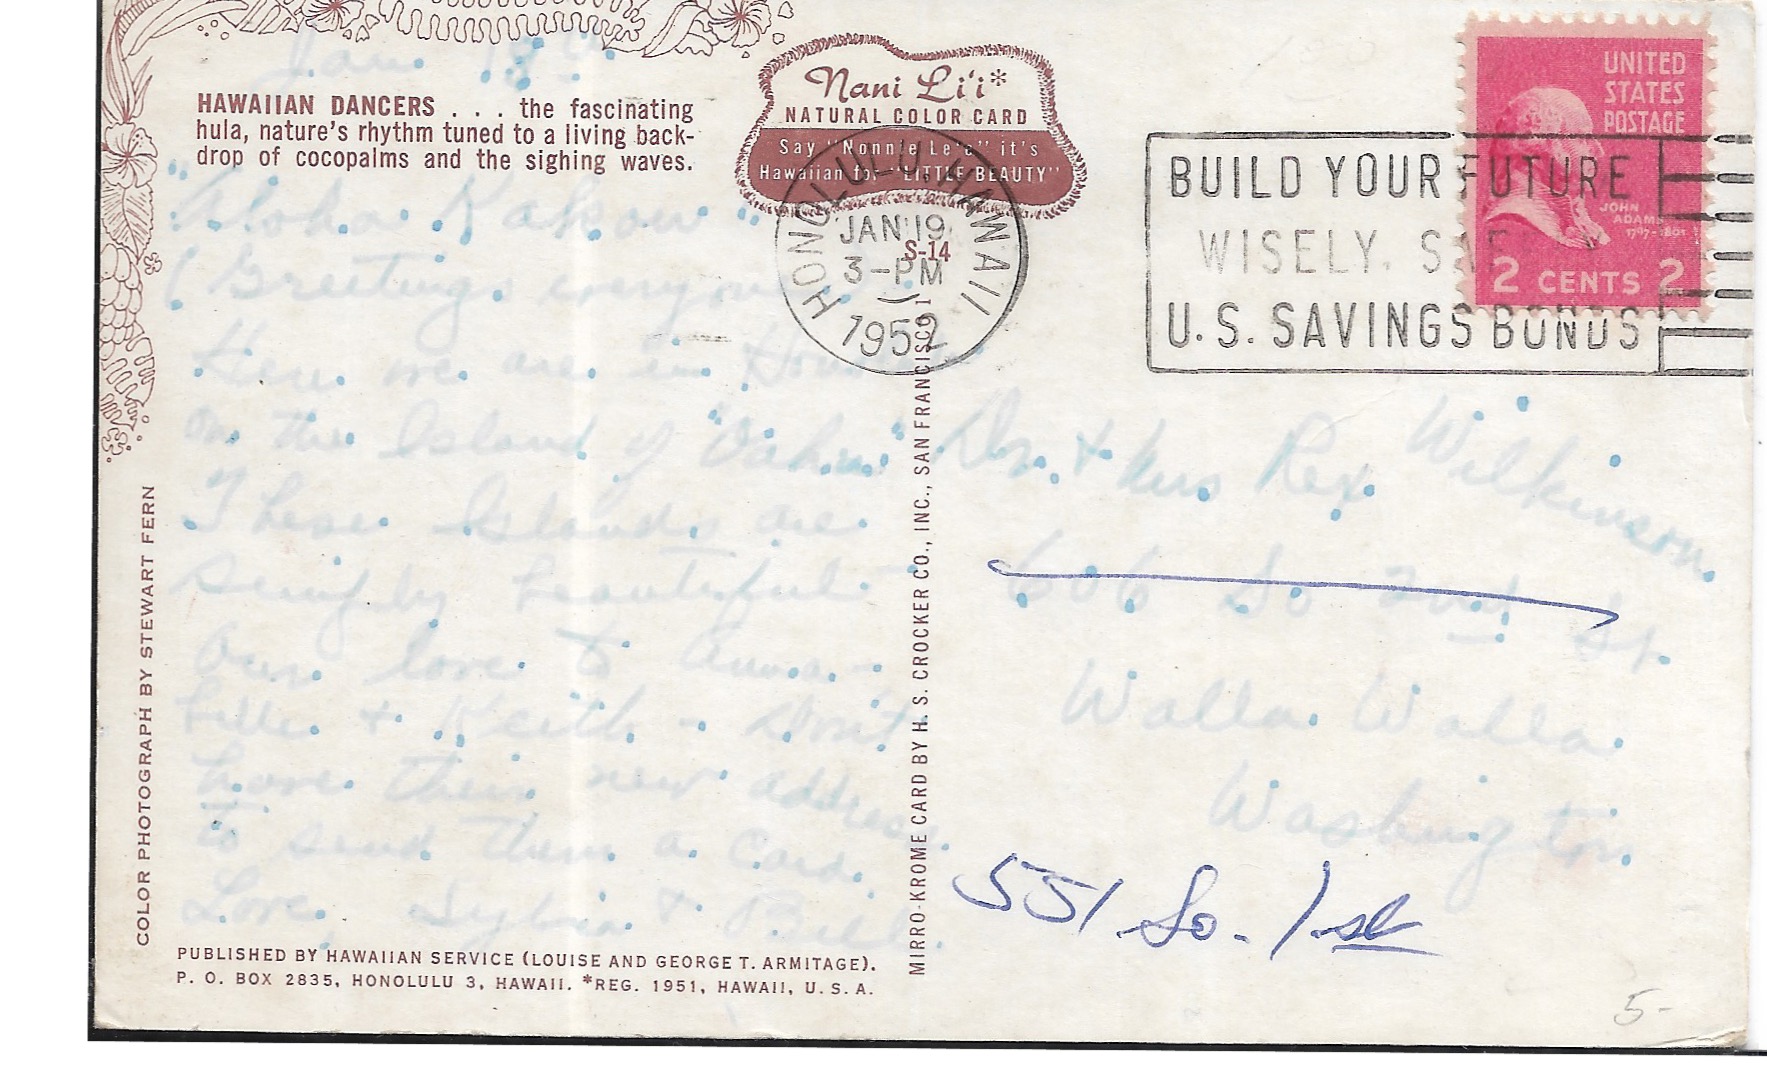 Jan. 18
HAWAIIAN DANCERS . . . the fascinating
hula, nature's rhythm tuned to a living back-
drop of cocopalms and the sighing waves.
"Aloha Kakou"
(Greetings everyone)
Here we are in
on the Island of "Oahu"
These Islands are
simply beautiful -
Our love to
& Keith - Don't
have their new address
to send them a card.
Love, Sylvia & Bill.
PUBLISHED BY HAWAIIAN SERVICE (LOUISE AND GEORGE T. ARMITAGE).
P. O. BOX 2835, HONOLULU 3, HAWAII. *REG. 1951, HAWAII, U. S. A.
COLOR PHOTOGRAPH BY STEWART FERN
Nani Li'i*
NATURAL COLOR CARD
Say "Nonnie Le'e" it's
Hawaiian for "LITTLE BEAUTY"
S-14
HONOLULU, HAWAII
JAN 19
3-PM
1952
MIRRO-KROME CARD BY H. S. CROCKER CO., INC., SAN FRANCISCO 1
BUILD YOUR FUTURE
WISELY, SAFELY
U.S. SAVINGS BONDS
UNITED
STATES
POSTAGE
JOHN
ADAMS
1797-1801
2 CENTS 2
Dr. & Mrs Rex Wilkinson
606 So 2nd St.
Walla Walla
Washington
551 So. 1st
5-